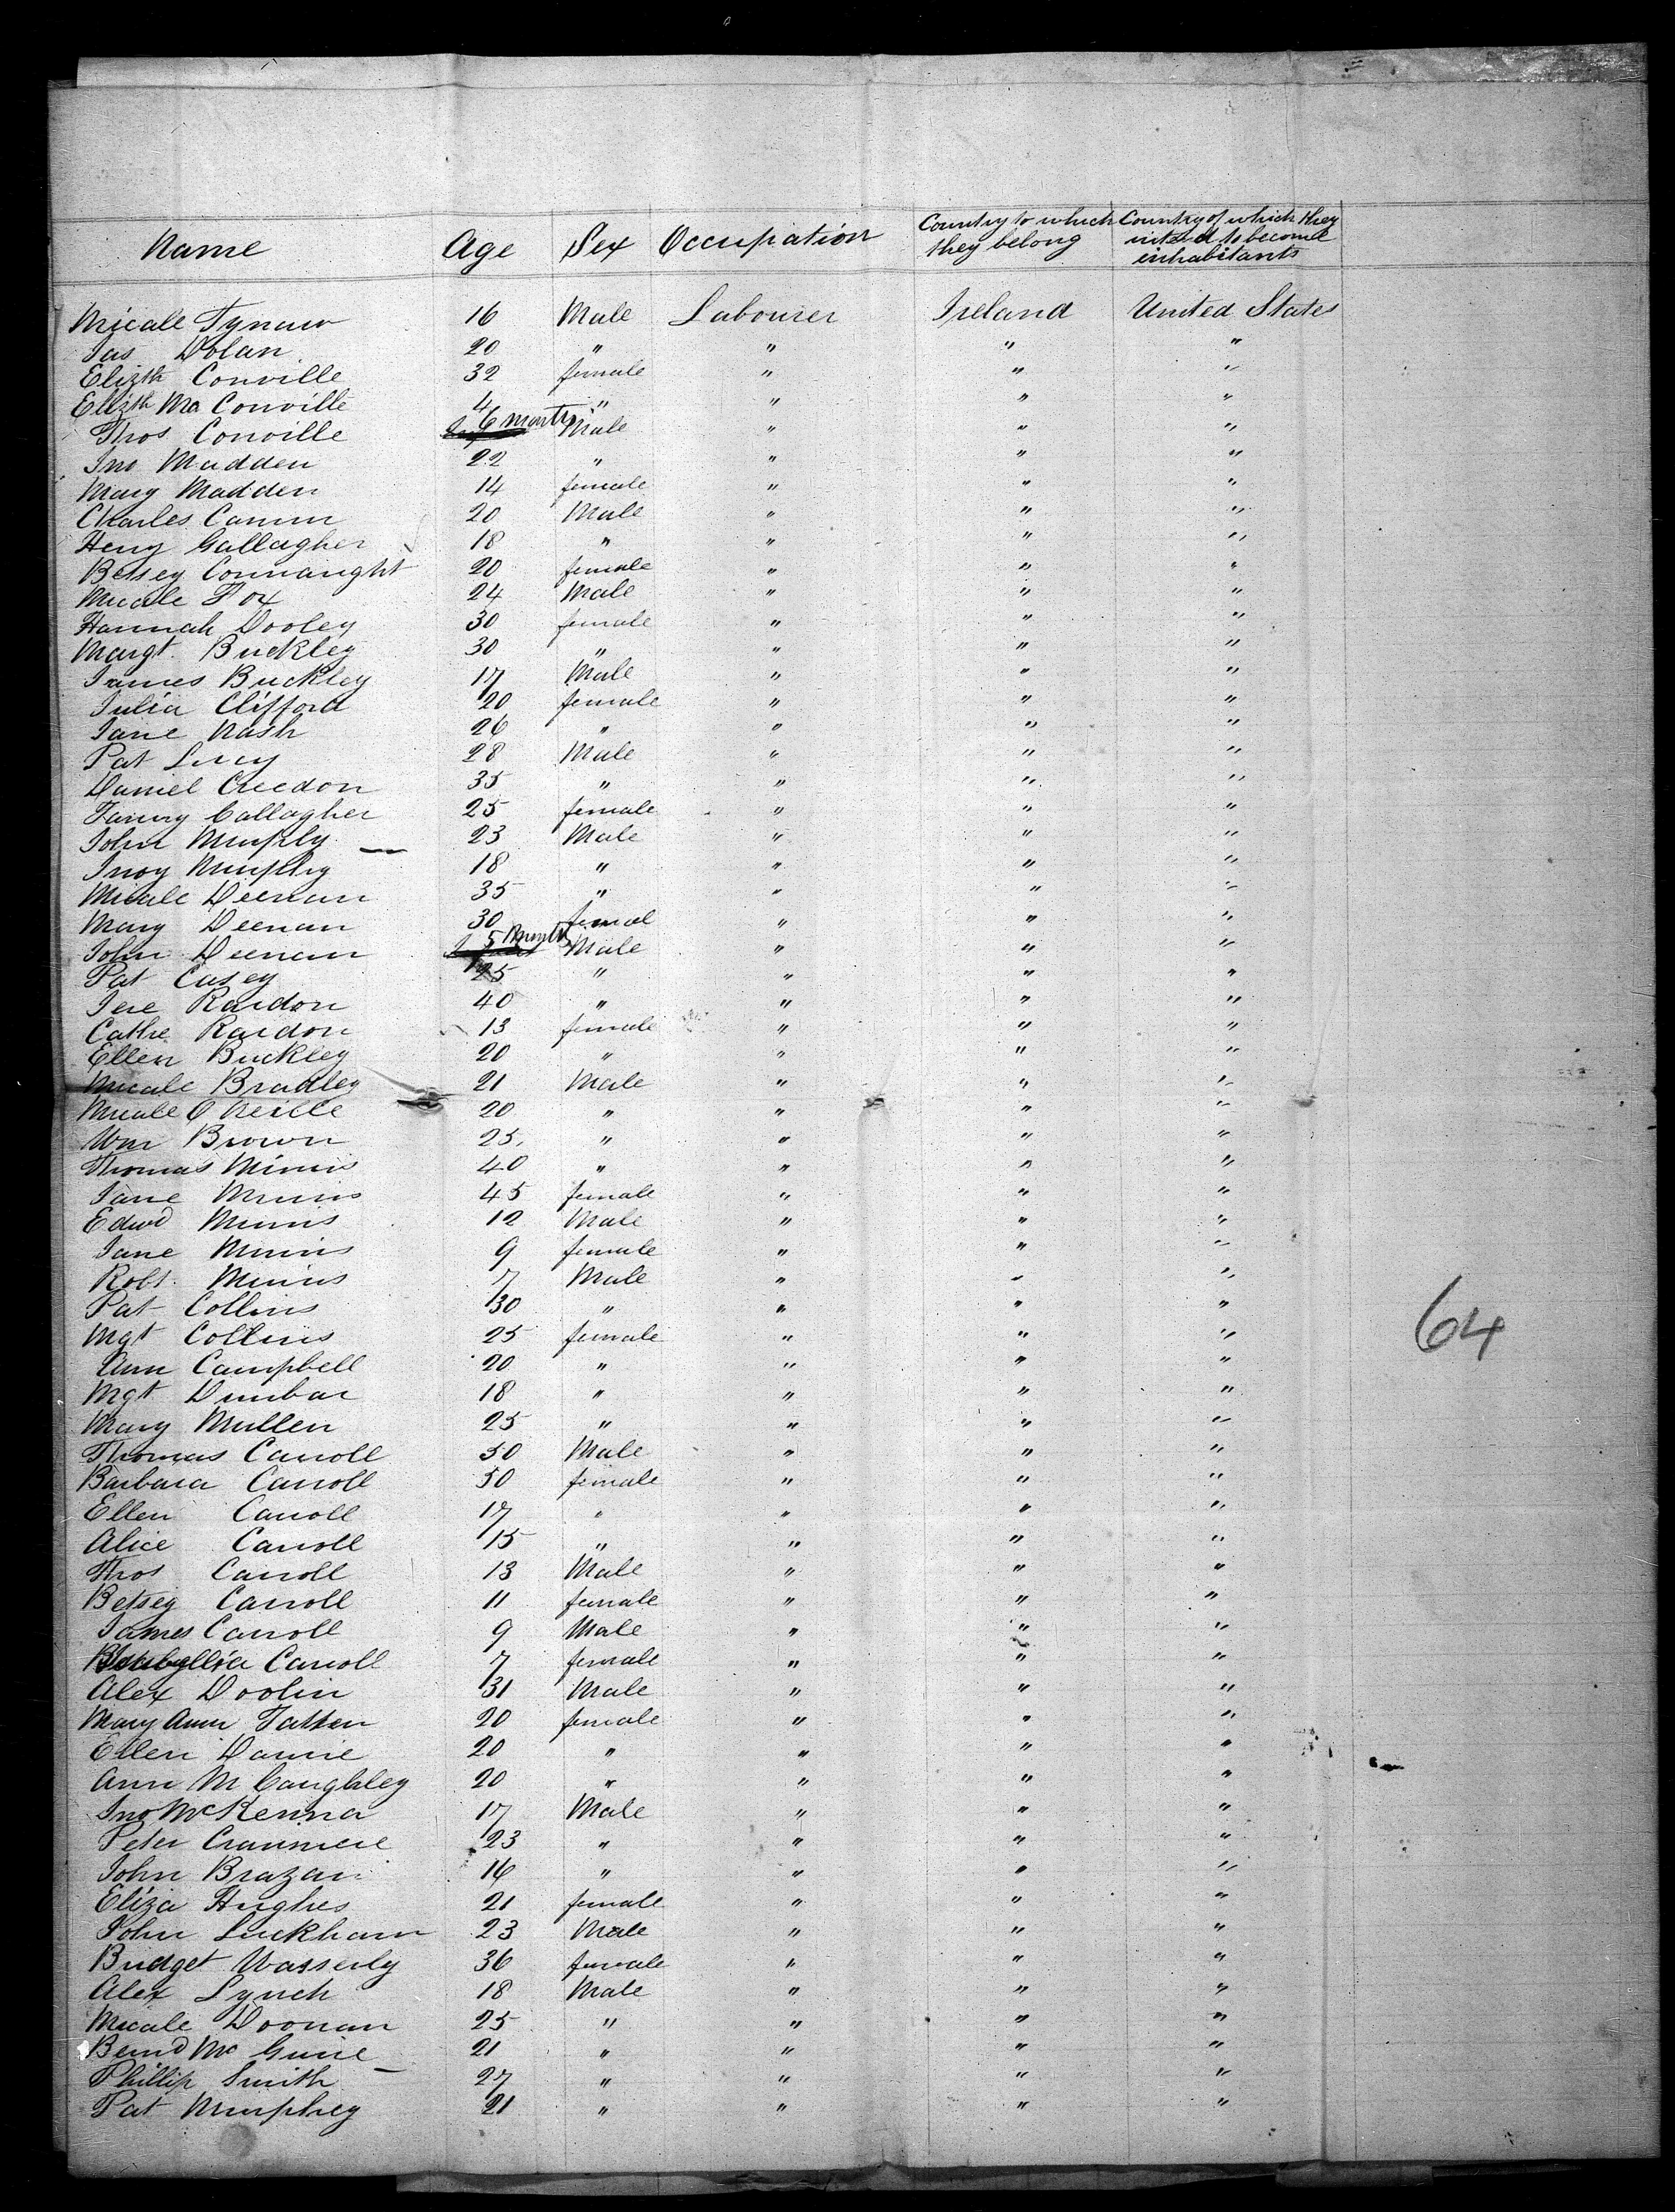 Name Age Sex Occupation Country to which they belong Country of which they intend to become inhabitants
Micale Tynan 16 Male Labourer Ireland United States
Jas Dolan 20 " " " "
Elizth Conville 32 female " " "
Elizth Ma Conville 4 " " " "
Thos Conville 6 months Male " " "
Jno Madden 22 " " " "
Mary Madden 14 female " " "
Charles Camm 20 Male " " "
Heny Gallagher 18 " " " "
Betsey Connaught 20 female " " "
Micale Fox 24 Male " " "
Hannah Dooley 30 female " " "
Margt. Buckley 30 " " " "
James Buckley 17 Male " " "
Julia Clifford 20 female " " "
Jane Nash 26 " " " "
Pat Lucy 28 Male " " "
Daniel Creedon 35 " " " "
Fanny Callagher 25 female " " "
John Murphy 23 Male " " "
Murphy 18 " " " "
Micale Deenan 35 " " " "
Mary Deenan 30 femal " " "
John Deenan 5 Months Male " " "
Pat Casey 25 " " " "
Jere Raidon 40 " " " "
Cathe Raidon 13 female " " "
Ellen Buckley 20 " " " "
Micale Bradley 21 Male " " "
Micale O Neille 20 " " " "
Wm Brown 25 " " " "
Thomas Minnis 40 " " " "
Jane Minnis 45 female " " "
Edwd Minnis 12 Male " " "
Jane Minnis 9 female " " "
Robt. Minnis 7 Male " " "
Pat Collins 30 " " " "
Mgt Collins 25 female " " "
64
Ann Campbell 20 " " " "
Mgt Dunbar 18 " " " "
Mary Mullen 25 " " " "
Thomas Carroll 50 Male " " "
Barbara Carroll 50 female " " "
Ellen Carroll 17 " " " "
Alice Carroll 15 " " " "
Thos Carroll 13 Male " " "
Betsey Carroll 11 female " " "
James Carroll 9 Male " " "
Carroll 7 female " " "
Alex Doolin 31 Male " " "
Mary Ann Tatten 20 female " " "
Ellen Daune 20 " " " "
Ann McCaughley 20 " " " "
Jno McKenna 17 Male " " "
Peter Cranmere 23 " " " "
John Brazan 16 " " " "
Eliza Hughes 21 female " " "
John Luckham 23 Male " " "
Bridget Wasserly 36 female " " "
Alex Lynch 18 Male " " "
Micale Doonan 25 " " " "
Bernd Mc Guire 21 " " " "
Phillip Smith 27 " " " "
Pat Murphey 21 " " " "